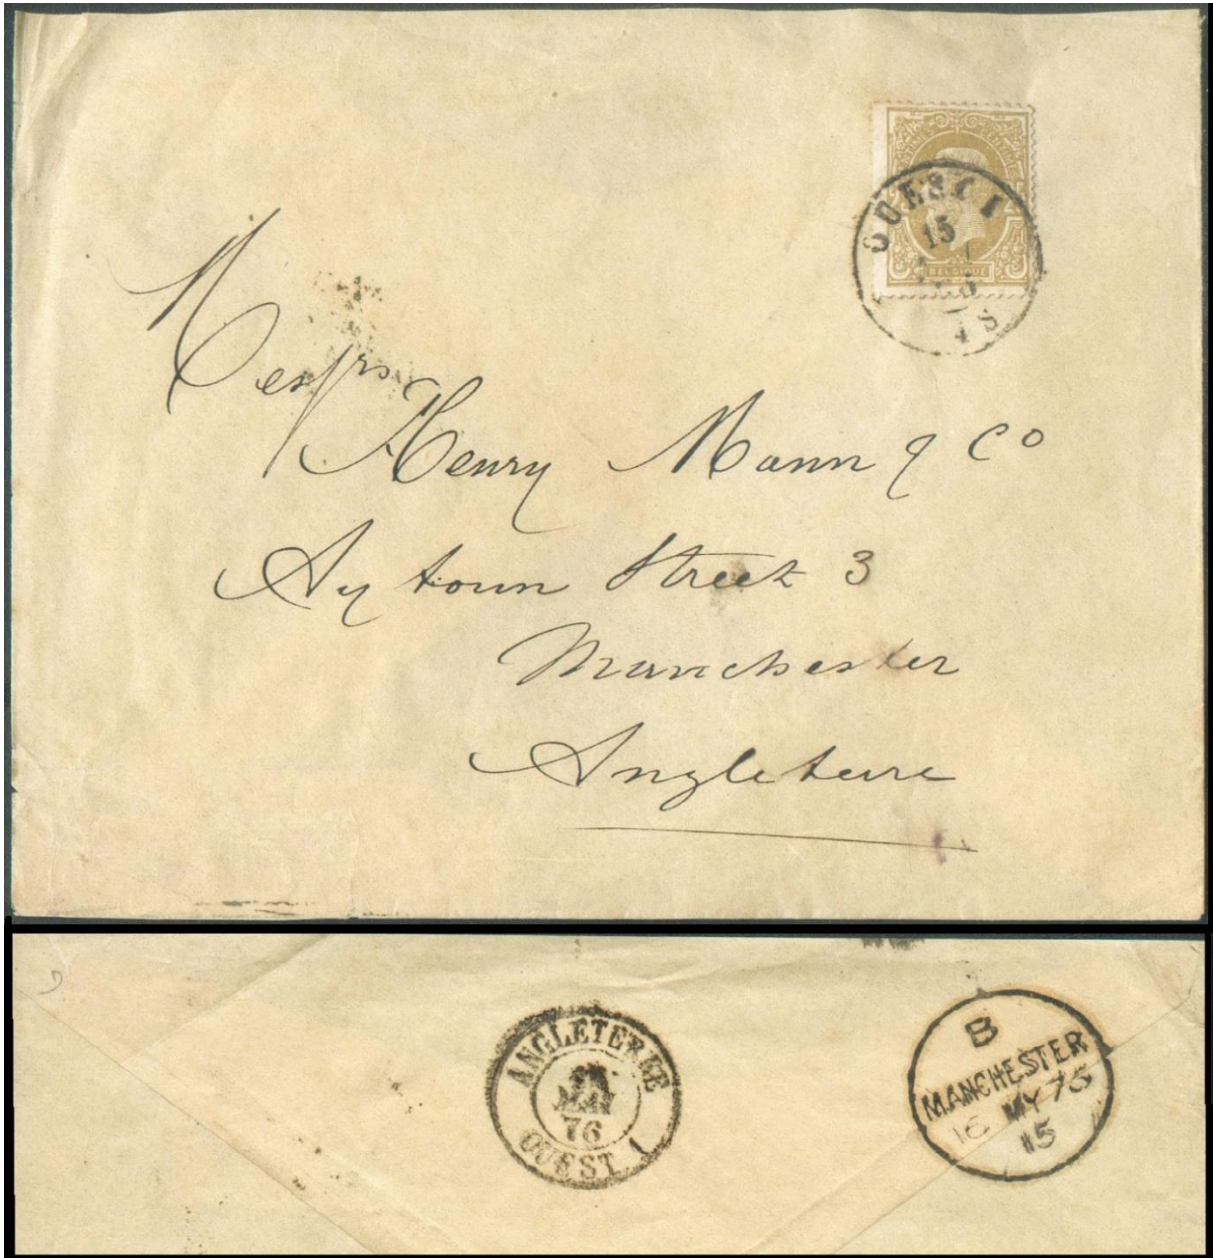 CENTIMES
BELGIQUE
OUEST 1
15
4 S
Messrs
Henry Mann & Co
Aytoun Street 3
Manchester
Angleterre
ANGLETERRE
MAI
76
OUEST 1
B
MANCHESTER
16 MY 76
15